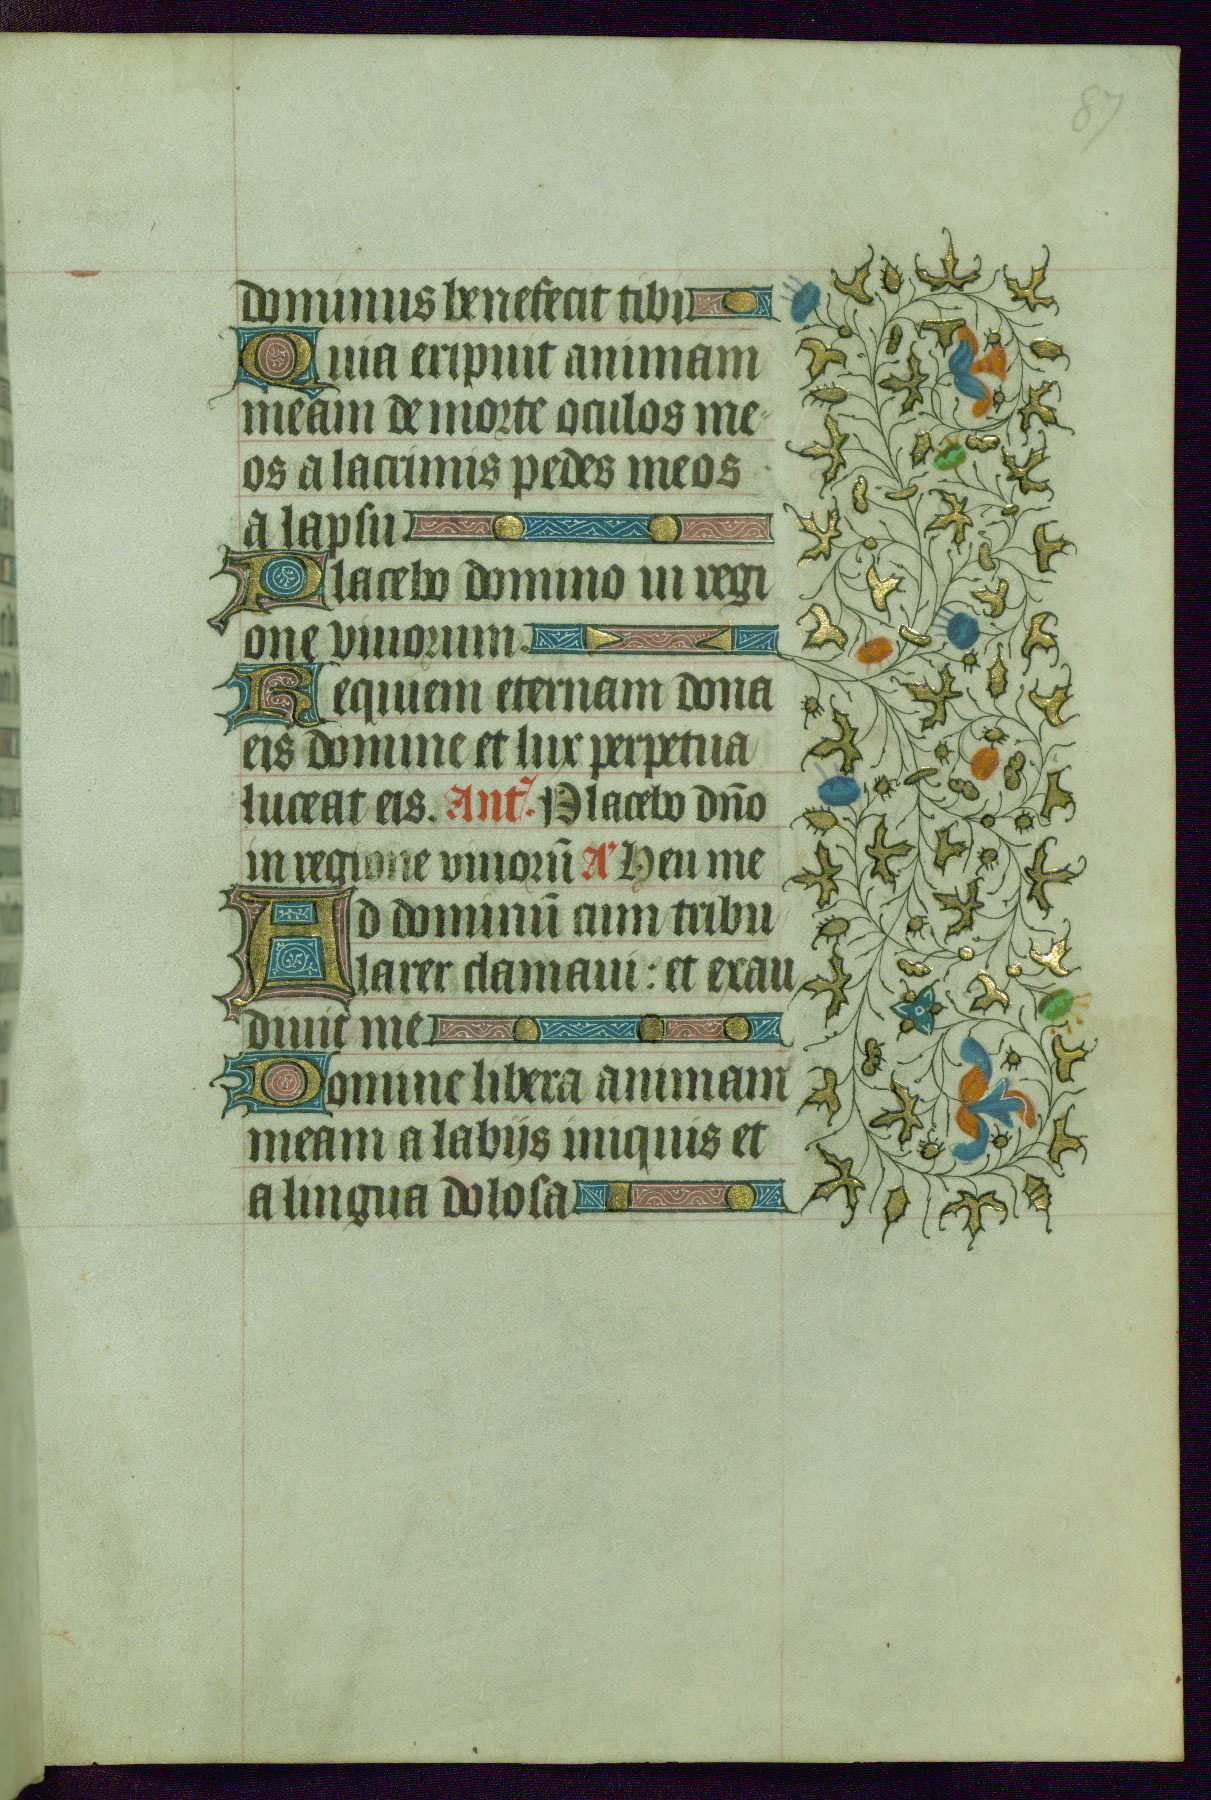 87
dominus benefecit tibi
Quia eripuit animam
meam de morte oculos me-
os a lacrimis pedes meos
a lapsu
Placebo domino in regi
one vivorum.
Requiem eternam dona
eis domine et lux perpetua
luceat eis. Ant. Placebo dño
in regione vivorū A' Heu me
Ad dominū cum tribu
larer clamavi: et exau
divit me
Domine libera animam
meam a labijs iniquis et
a lingua dolosa